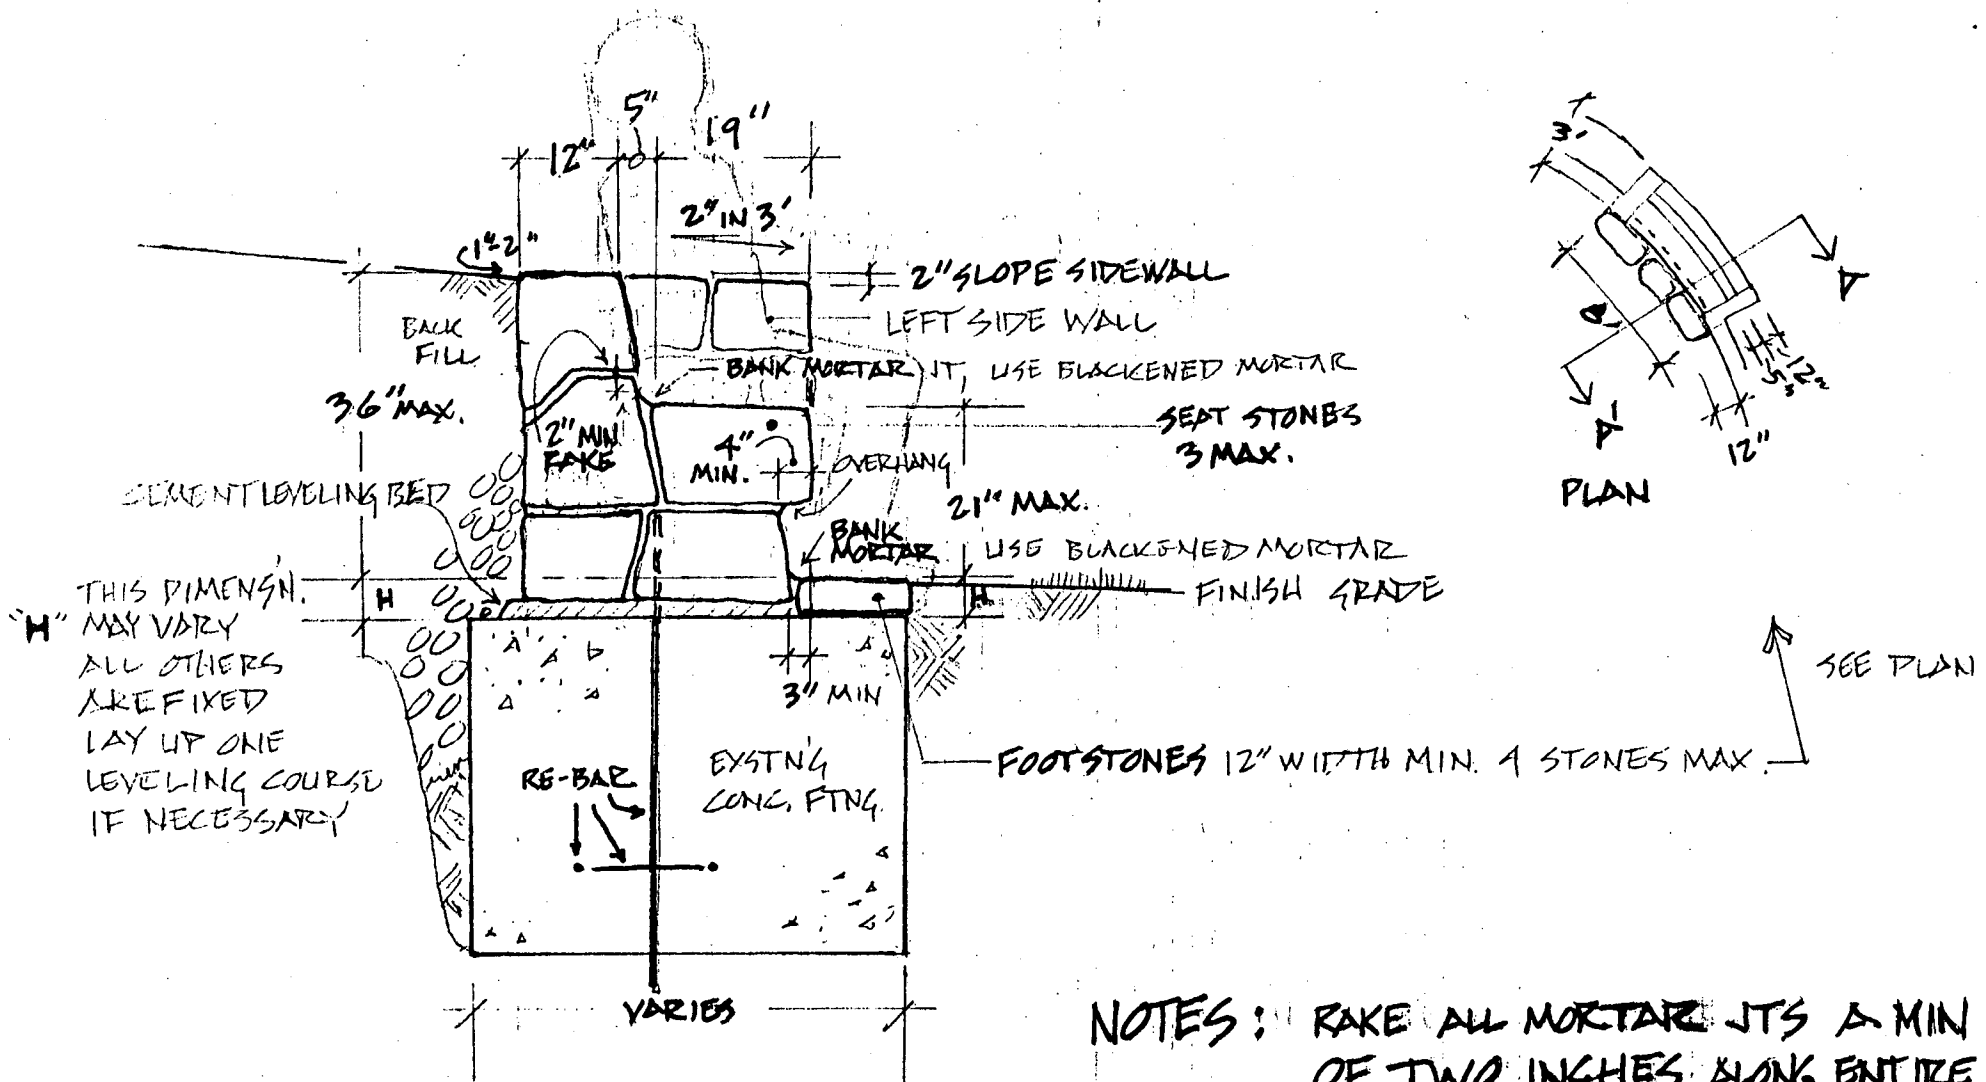 5"
12" 19"
2" IN 3'
1"-2"
2" SLOPE SIDEWALL
LEFT SIDE WALL
BACK
FILL
BANK MORTAR JT, USE BLACKENED MORTAR
36" MAX.
SEAT STONES
3 MAX.
2" MIN
RAKE
4"
MIN.
OVERHANG
CEMENT LEVELING BED
21" MAX.
BANK
MORTAR
USE BLACKENED MORTAR
FINISH GRADE
H
H
"H" THIS DIMENS'N.
MAY VARY
ALL OTHERS
ARE FIXED
LAY UP ONE
LEVELING COURSE
IF NECESSARY
3" MIN
FOOTSTONES 12" WIDTH MIN. 4 STONES MAX.
SEE PLAN
RE-BAR
EXSTN'G
CONC. FTNG.
VARIES
3'
A
A'
12"
5"
12"
PLAN
NOTES: RAKE ALL MORTAR JTS A MIN
OF TWO INCHES ALONG ENTIRE